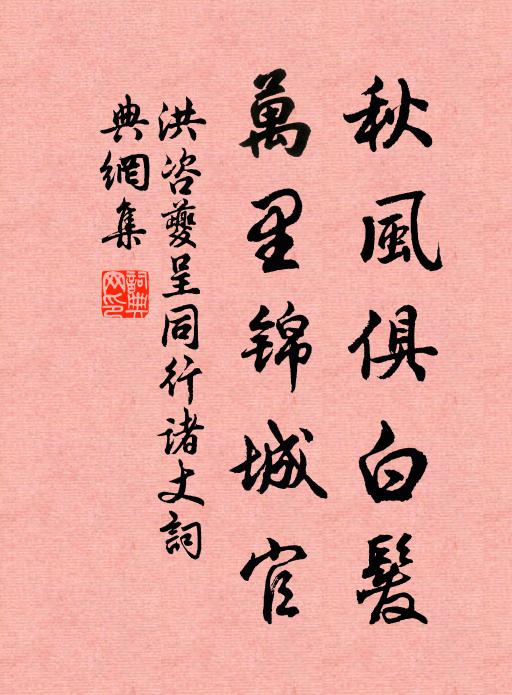 秋風俱白髮
萬里錦城官
洪咨夔呈同行諸丈詞
典網集
詞典網印